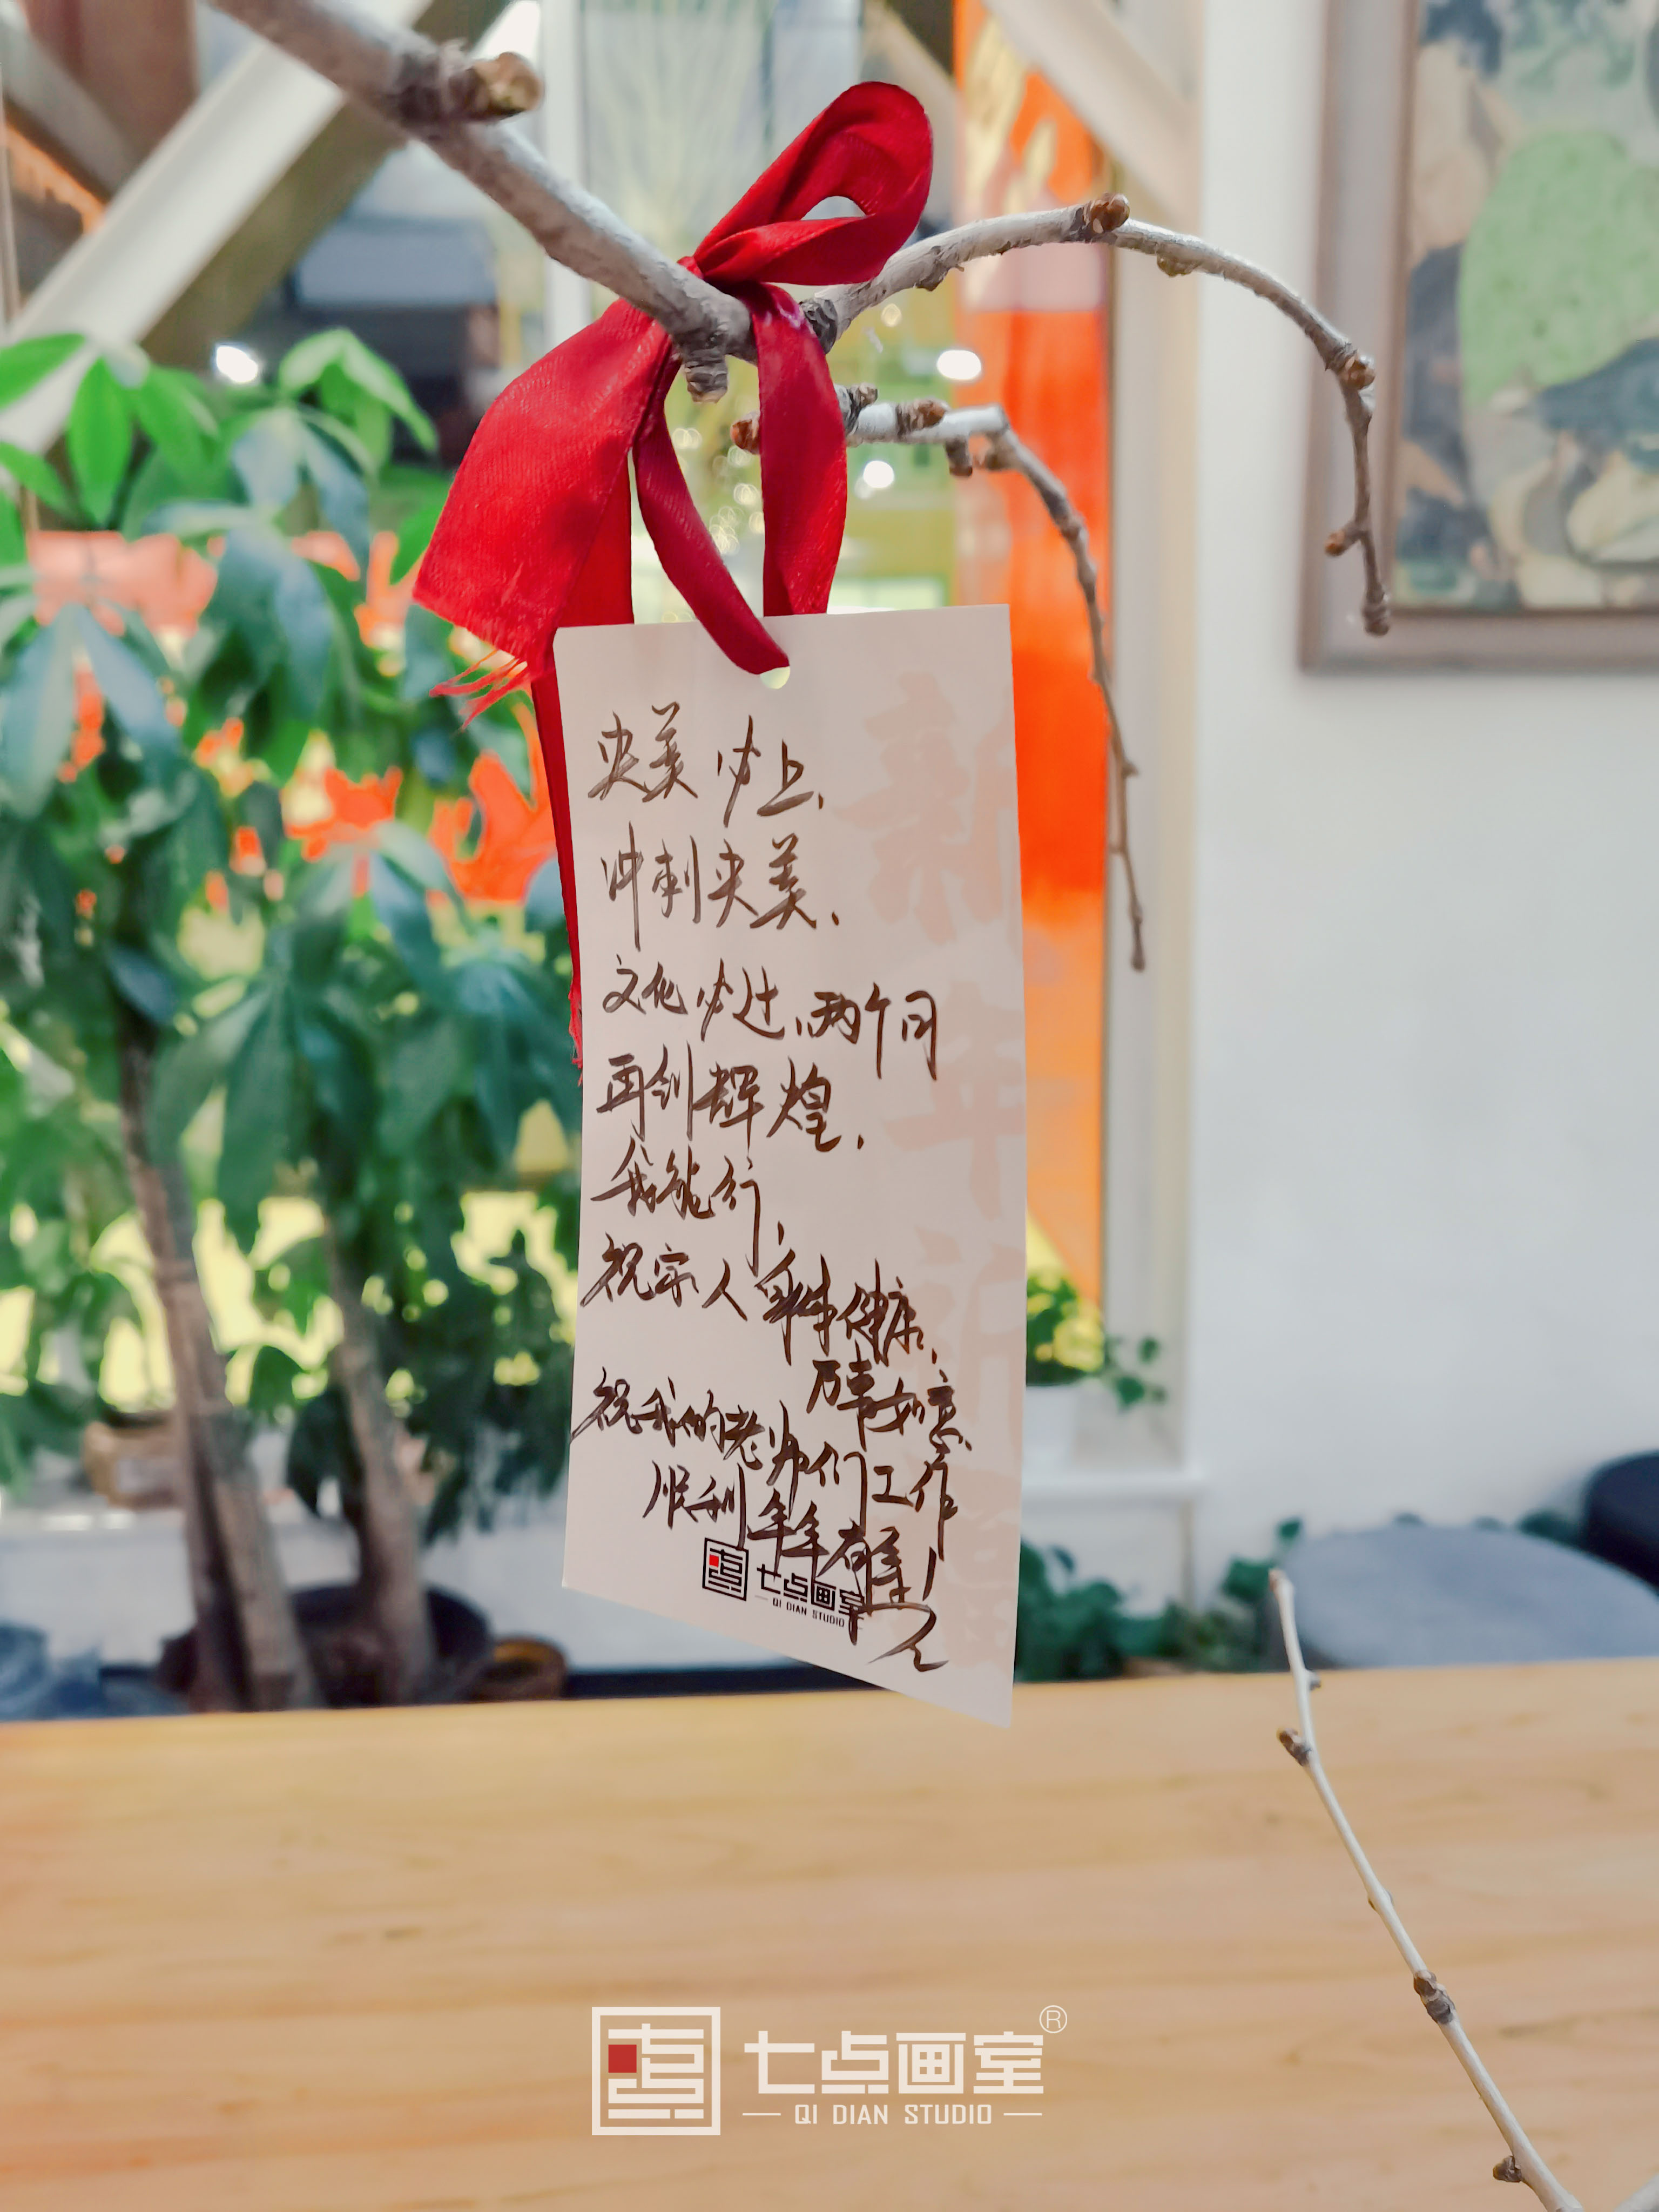 央美必上,
冲刺央美,
文化必过,两个月
再创辉煌,
我能行,
祝家人身体健康,
万事如意
祝我的老师们工作
顺利年年有
七点画室
QI DIAN STUDIO
新年祈
七点画室®
QI DIAN STUDIO